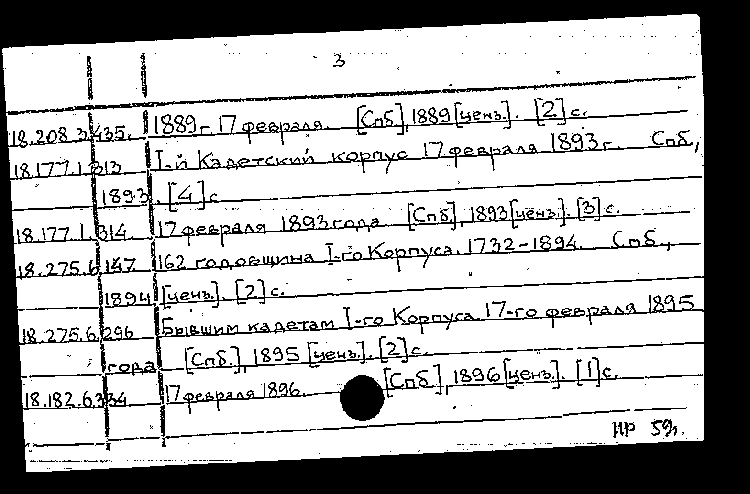 3
18.208.3.435. 1889- 17 февраля. [Спб], 1889 [ценз.]. [2] с.
18.177.1.313 I-й Кадетский корпус 17 февраля 1893 г. Спб,
1893. [4] с
18.177.1.314 17 февраля 1893 года [Спб], 1893 [ценз.]. [3] с.
18.275.6.147 162 годовщина I-го Корпуса. 1732-1894. Спб.,
1894 [ценз.]. [2] с.
18.275.6.296 Бывшим кадетам I-го Корпуса 17-го февраля 1895
года [Спб.], 1895 [ценз.]. [2] с.
18.182.6.334 17 февраля 1896. [Спб], 1896 [ценз.]. [1] с.
НР 59г.